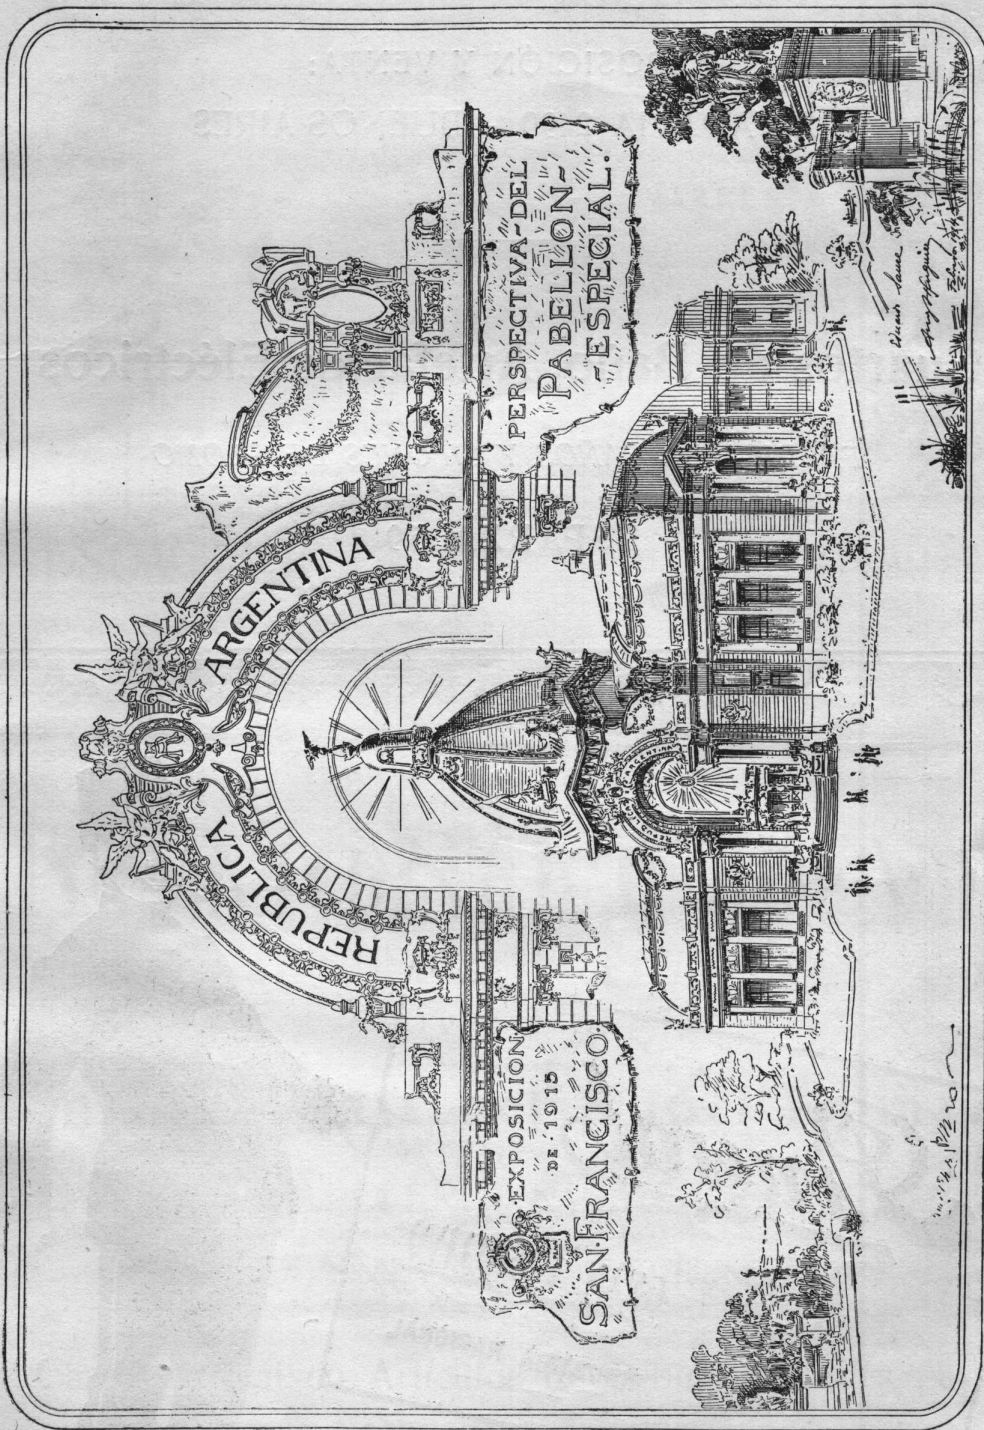 REPUBLICA ARGENTINA
EXPOSICION
DE 1915
SAN·FRANCISCO
PERSPECTIVA-DEL
PABELLON-
-ESPECIAL.
REPUBLICA ARGENTINA